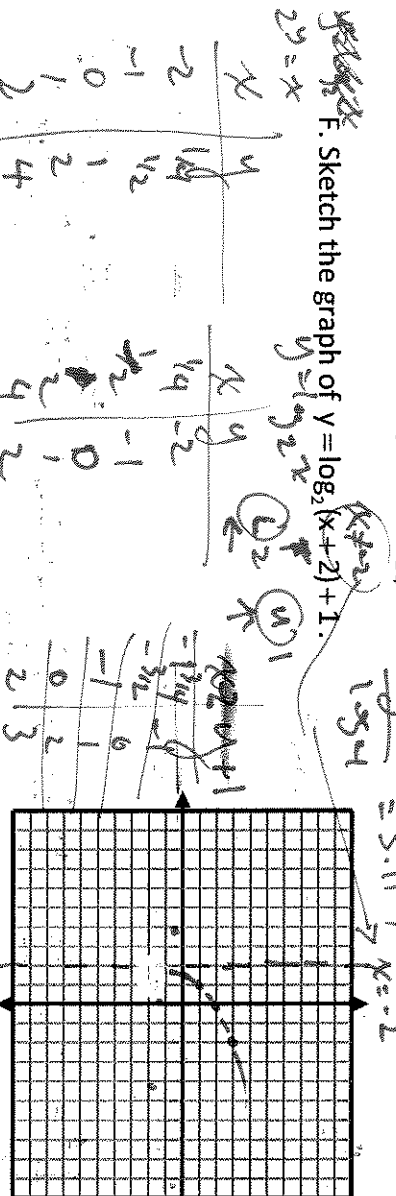 F. Sketch the graph of y = log₂(x + 2) + 1.
2^y = x
x y
-2 1/4
-1 1/2
0 1
1 2
2 4
y = log₂x
x y
1/4 -2
1/2 -1
0
2 1
4 2
L 2
u 1
y + 1
-1 3/4 -1
-3/2 0
-1 1
0 2
2 3
log 4
x = -2